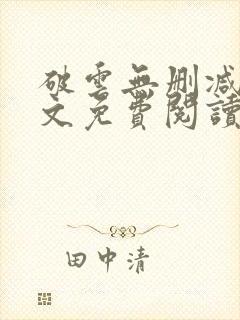 破雲無刪減
文免費閱讀
田中清